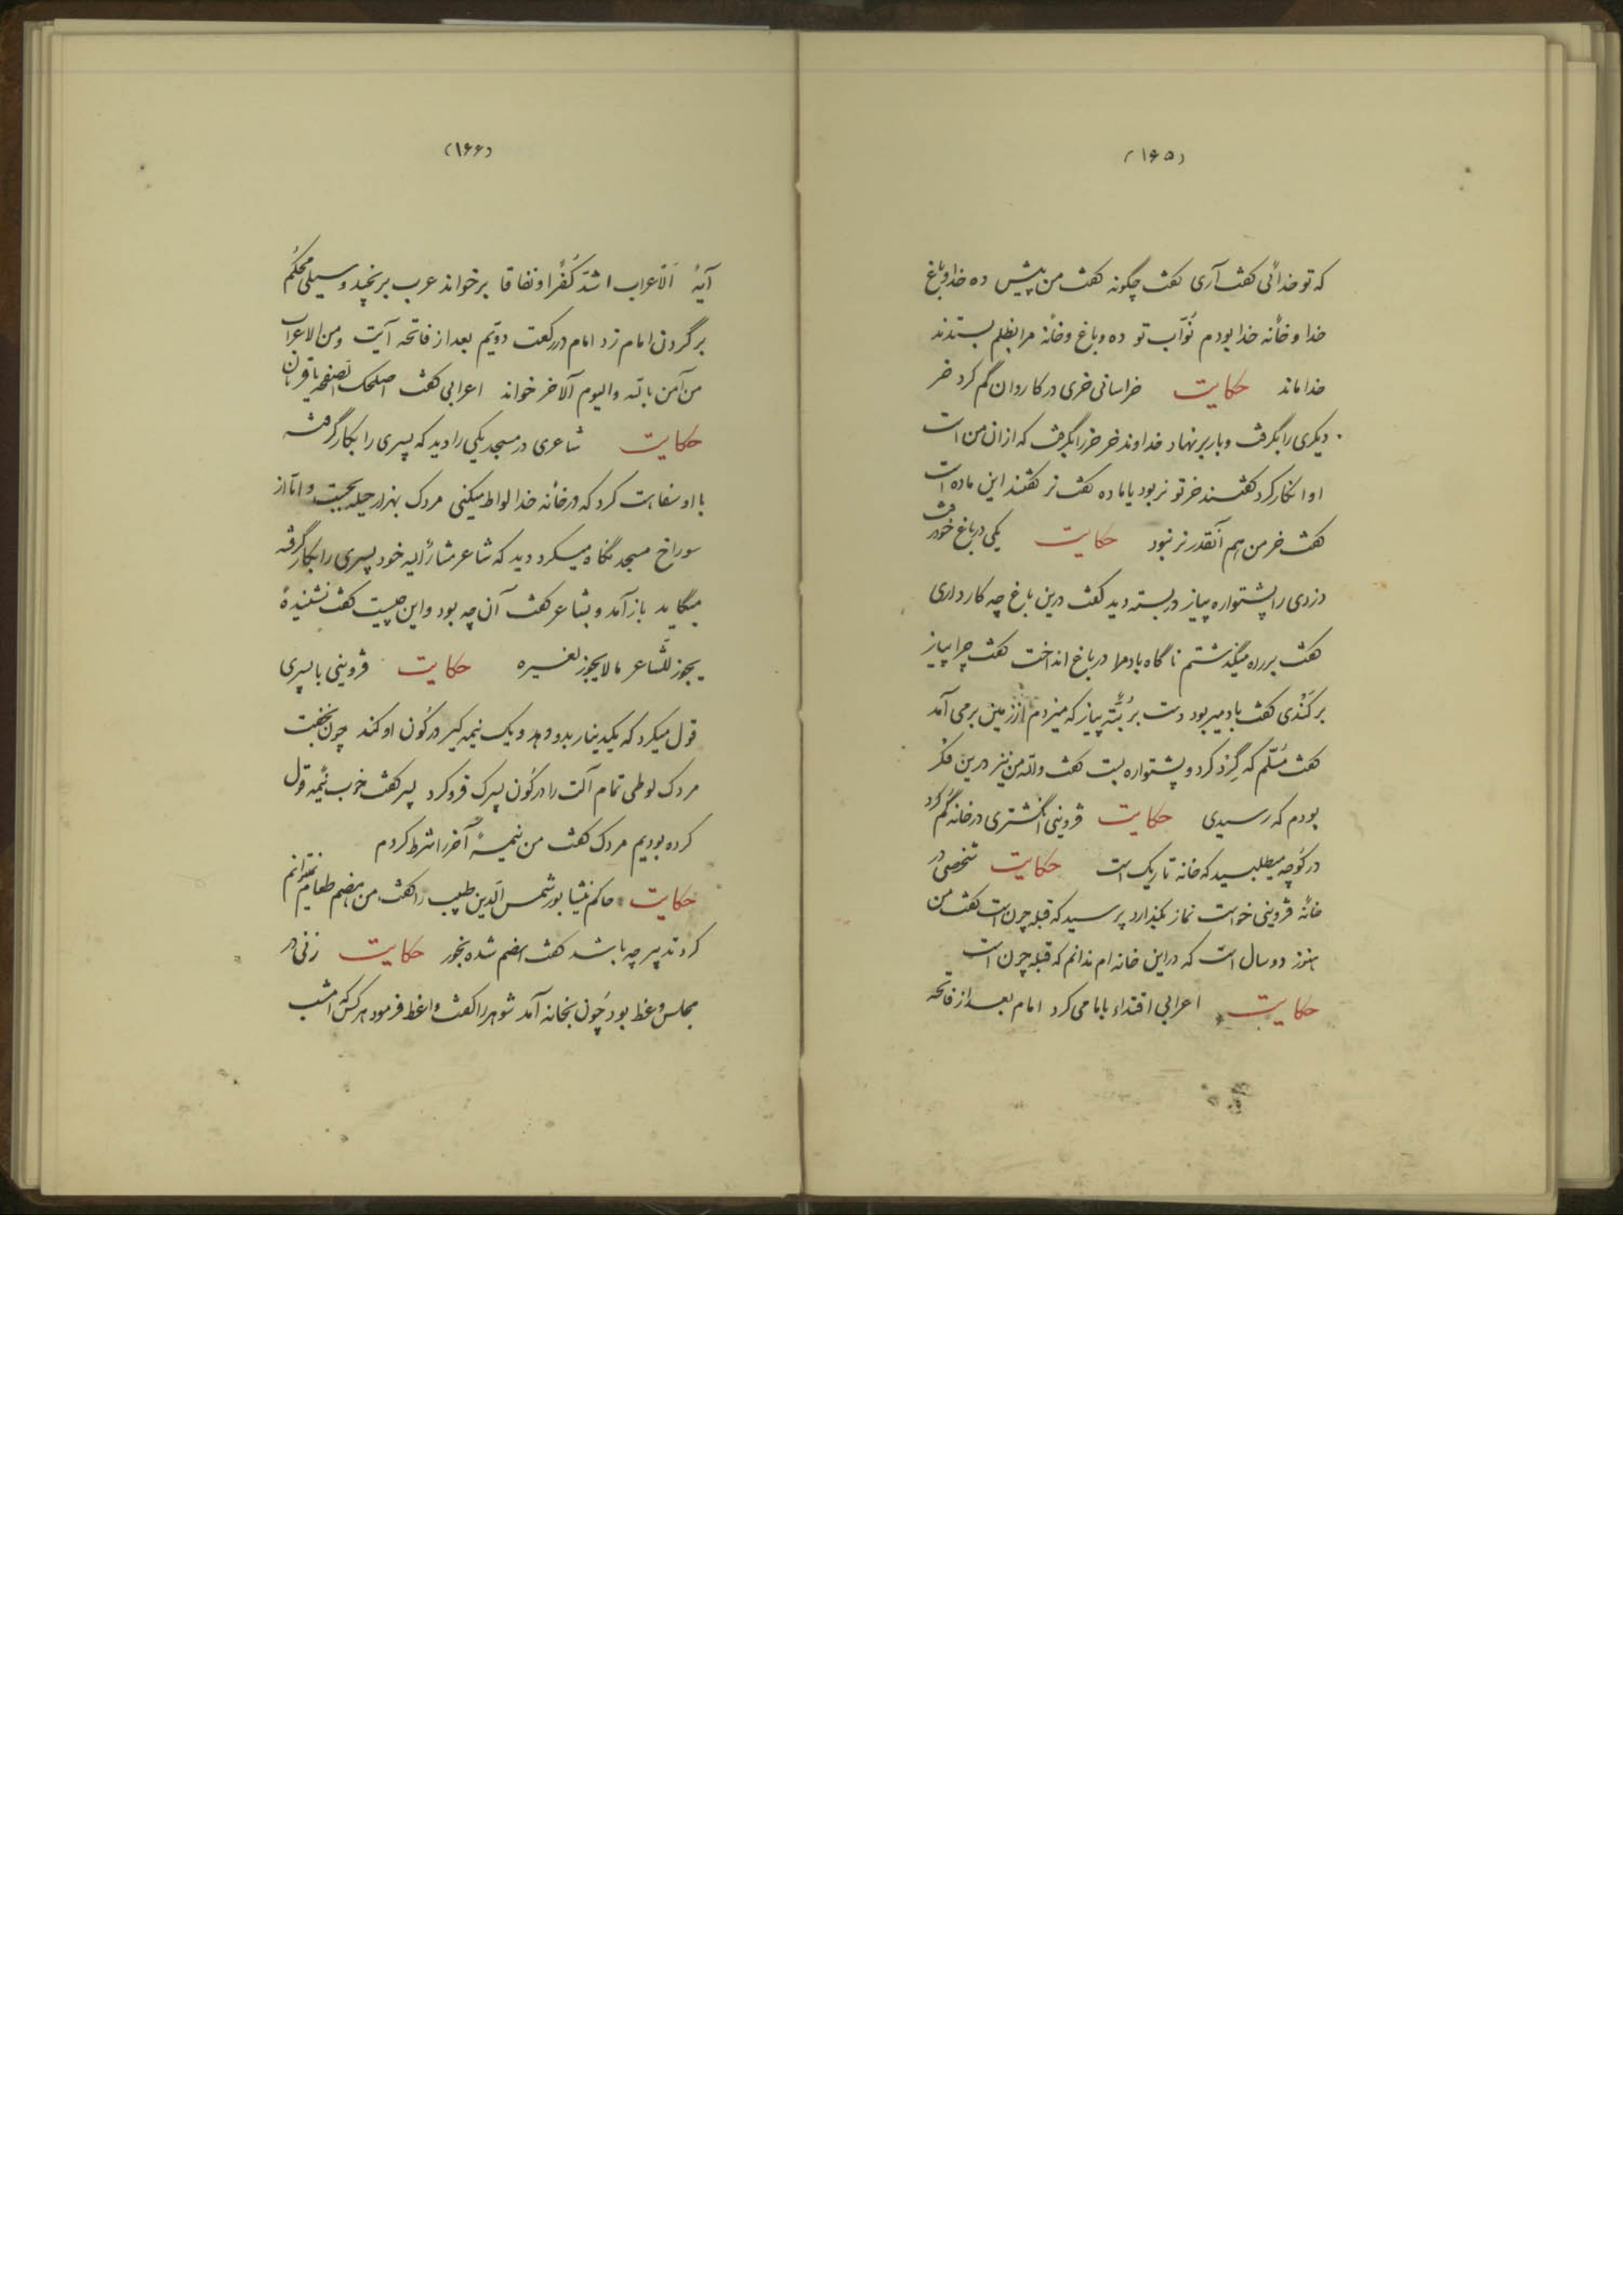 (۱۶۵)
که تو خدائی گفت آری گفت چگونه گفت من پیش ده خدا و باغ
خدا و خانه خدا بودم نوّاب تو ده و باغ و خانه مرا بظلم بستدند
خدا ماند حکایت خراسانی خری در کاروان گم کرد خر
دیگری را بگرفت و بار بر نهاد خداوند خر خر را بگرفت که از ان من است
او انکار کرد گفتند خر تو نر بود یا ماده گفت نر گفتند این ماده است
گفت خر من هم آنقدر نر نبود حکایت یکی در باغ خود رفت
دزدی را پشتواره پیاز در بسته دید گفت درین باغ چه کار داری
گفت بر راه میگذشتم ناگاه باد مرا در باغ انداخت گفت چرا پیاز
برکندی گفت باد میربود دست بر بُتّه پیاز که میزدم از زمین برمی آمد
گفت مُسَلّم که گِرد کرد و پشتواره بست گفت والله من نیز درین فکر
بودم که رسیدی حکایت قزوینی انگشتری در خانه گم کرد
در کوچه میطلبید که خانه تاریک است حکایت شخصی در
خانه قزوینی خواست نماز بگذارد پرسید که قبله چون است گفت من
هنوز دو سال است که در این خانه ام ندانم که قبله چون است
حکایت اعرابی اقتداء با امامی کرد امام بعد از فاتحه
(۱۶۶)
آیهٔ اَلاَعراب اشدّ کُفْراً و نفاقا برخواند عرب برنجید و سیلی محکم
بر گردن امام زد امام در رکعت دوّیم بعد از فاتحه آیت ومن الاعراب
من آمن بالله والیوم الآخر خواند اعرابی گفت اصلحک الصفع یا قرنان
حکایت شاعری در مسجد یکی را دید که پسری را بکار گرفته
با او سفاهت کرد که در خانه خدا لواط میکنی مردک بهزار حیله بجست و امّا از
سوراخ مسجد نگاه میکرد دید که شاعر مشارٌالیه خود پسری را بکار گرفته
میگاید باز آمد و بشاعر گفت آن چه بود و این چیست گفت نشنیدهٔ
یجوز للشّاعر ما لا یجوز لغیره حکایت قزوینی با پسری
قول میکرد که یکدینار بدو دهد و یک نیمه کیر در کون او کند چون بخفت
مردک لوطی تمام آلت را در کون پسرک فرو کرد پسر گفت خوب نیمه قول
کرده بودیم مردک گفت من نیمهٔ آخر را شرط کردم
حکایت حاکم نیشابور شمس الدّین طبیب را گفت من هضم طعام نمیتوانم
کرد تدبیر چه باشد گفت هضم شده بخور حکایت زنی در
مجلس وعظ بود چون بخانه آمد شوهر را گفت واعظ فرمود هر کس که امشب